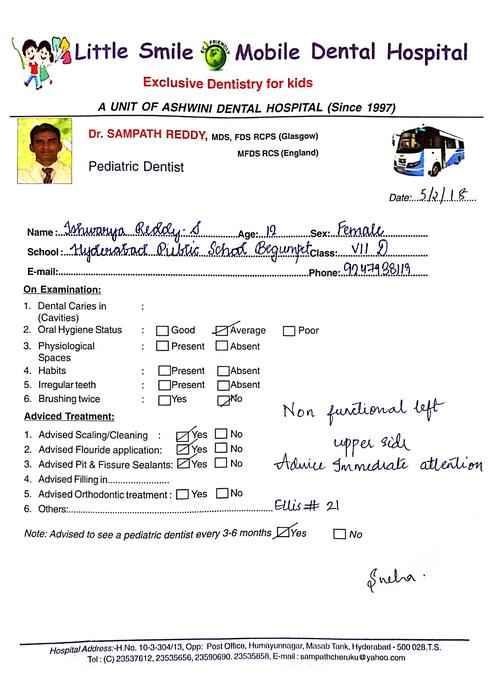 Little Smile Mobile Dental Hospital
ECO FRIENDLY
Exclusive Dentistry for kids
A UNIT OF ASHWINI DENTAL HOSPITAL (Since 1997)
Dr. SAMPATH REDDY, MDS, FDS RCPS (Glasgow)
MFDS RCS (England)
Pediatric Dentist
Date: 5/2/18
Name: Ishwarya Reddy-S Age: 12 Sex: Female
School: Hyderabad Public School Begumpet Class: VII D
E-mail: Phone: 9247938119
On Examination:
1. Dental Caries in :
(Cavities)
2. Oral Hygiene Status : Good Average Poor
3. Physiological : Present Absent
Spaces
4. Habits : Present Absent
5. Irregular teeth : Present Absent
6. Brushing twice : Yes No
Non functional left
upper side
Advice Immediate attention
Adviced Treatment:
1. Advised Scaling/Cleaning : Yes No
2. Advised Flouride application: Yes No
3. Advised Pit & Fissure Sealants: Yes No
4. Advised Filling in
5. Advised Orthodontic treatment : Yes No
6. Others: Ellis # 21
Note: Advised to see a pediatric dentist every 3-6 months Yes No
Sneha.
Hospital Address:-H.No. 10-3-304/13, Opp: Post Office, Humayunnagar, Masab Tank, Hyderabad - 500 028.T.S.
Tel : (C) 23537612, 23535656, 23590690. 23535858, E-mail : sampathcheruku@yahoo.com